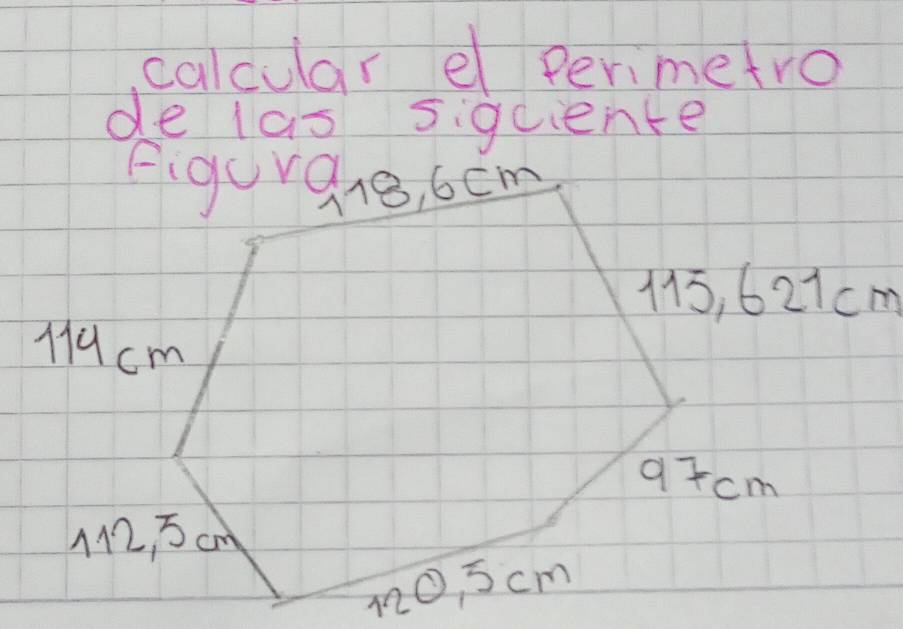 calcular el Perimetro
de las sigciente
Figura
118,6cm
115,621cm
114cm
97cm
112,5cm
120,5cm